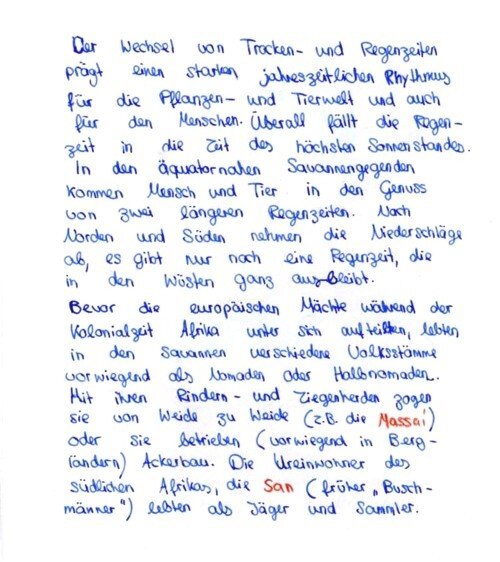 Der Wechsel von Trocken- und Regenzeiten
prägt einen starken jahreszeitlichen Rhythmus
für die Pflanzen- und Tierwelt und auch
für den Menschen. Überall fällt die Regen-
zeit in die Zeit des höchsten Sonnenstandes.
In den äquatornahen Savannengegenden
kommen Mensch und Tier in den Genuss
von zwei längeren Regenzeiten. Nach
Norden und Süden nehmen die Niederschläge
ab, es gibt nur noch eine Regenzeit, die
in den Wüsten ganz ausbleibt.
Bevor die europäischen Mächte während der
Kolonialzeit Afrika unter sich aufteilten, lebten
in den Savannen verschiedene Volksstämme
vorwiegend als Nomaden oder Halbnomaden.
Mit ihren Rindern- und Ziegenherden zogen
sie von Weide zu Weide (z.B. die Massai)
oder sie betrieben (vorwiegend in Berg-
ländern) Ackerbau. Die Ureinwohner des
südlichen Afrikas, die San (früher „Busch-
männer") lebten als Jäger und Sammler.